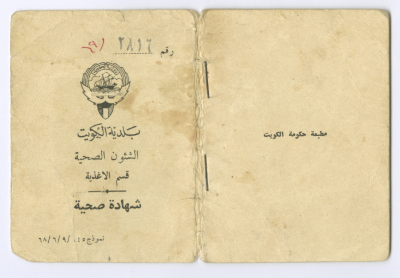 رقم ٢٨١٦ /٦٩
بلدية الكويت
الشئون الصحية
قسم الاغذية
شهادة صحية
نموذج ٤٥ /٦٨/٦/٩
مطبعة حكومة الكويت